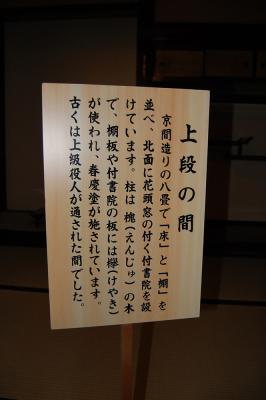 上段の間
京間造りの八畳で「床」と「棚」を
並べ、北面に花頭窓の付く付書院を設
けています。柱は 槐(えんじゅ)の木
で、棚板や付書院の板には欅(けやき)
が使われ、春慶塗が施されています。
古くは上級役人が通された間でした。